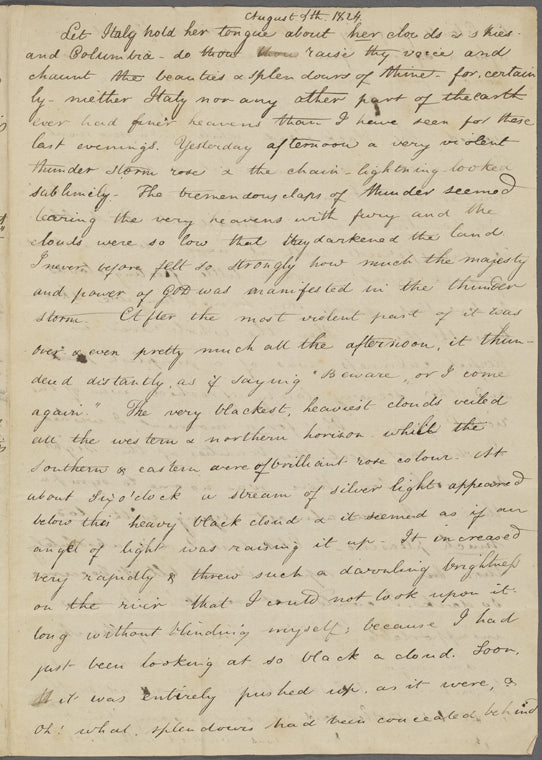 August 9th. 1824.
Let Italy hold her tongue about her clouds & skies.
and Columbia - do thou raise thy voice and
chaunt the beauties & splendours of thine - for, certain
ly - neither Italy nor any other part of the earth
ever had finer heavens than I have seen for these
last evenings. Yesterday afternoon a very violent
thunder storm rose & the chain-lightning looked
sublimely - The tremendous claps of thunder seemed
tearing the very heavens with fury and the
clouds were so low that they darkened the land
I never before felt so strongly how much the majesty
and power of GOD was manifested in the thunder
storm. After the most violent part of it was
over & even pretty much all the afternoon, it thun-
dered distantly, as if saying "Beware, or I come
again." The very blackest, heaviest clouds veiled
all the western & northern horison while the
southern & eastern were of brilliant rose colour. At
about six o'clock a stream of silver light appeared
below this heavy black cloud & it seemed as if an
angel of light was raising it up - It increased
very rapidly & threw such a dazzling brightness
on the river that I could not look upon it
long without blinding myself; because I had
just been looking at so black a cloud. Soon,
it was entirely pushed up, as it were, &
oh! what splendours had been concealed behind